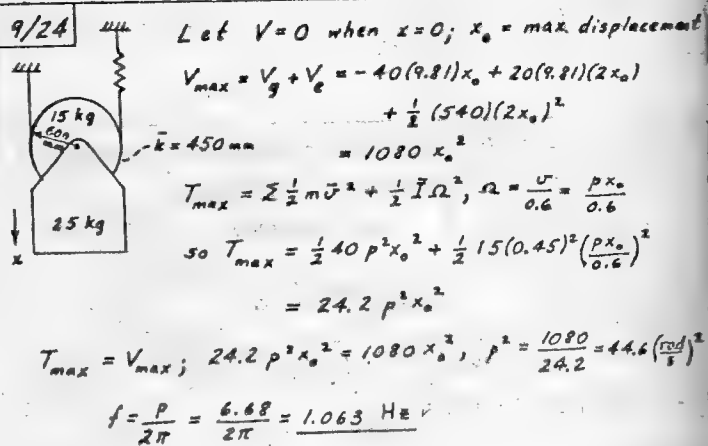 9/24
Let V=0 when x=0; x₀ = max. displacement
V_max = V_g + V_e = -40(9.81)x₀ + 20(9.81)(2x₀)
+ 1/2 (540)(2x₀)²
= 1080 x₀²
15 kg
600 mm
k̄ = 450 mm
25 kg
x
T_max = Σ 1/2 m v̄² + 1/2 Ī Ω², Ω = v/0.6 = px₀/0.6
so T_max = 1/2 40 p²x₀² + 1/2 15(0.45)² (px₀/0.6)²
= 24.2 p² x₀²
T_max = V_max; 24.2 p² x₀² = 1080 x₀², p² = 1080/24.2 = 44.6 (rad/s)²
f = p/2π = 6.68/2π = 1.063 Hz